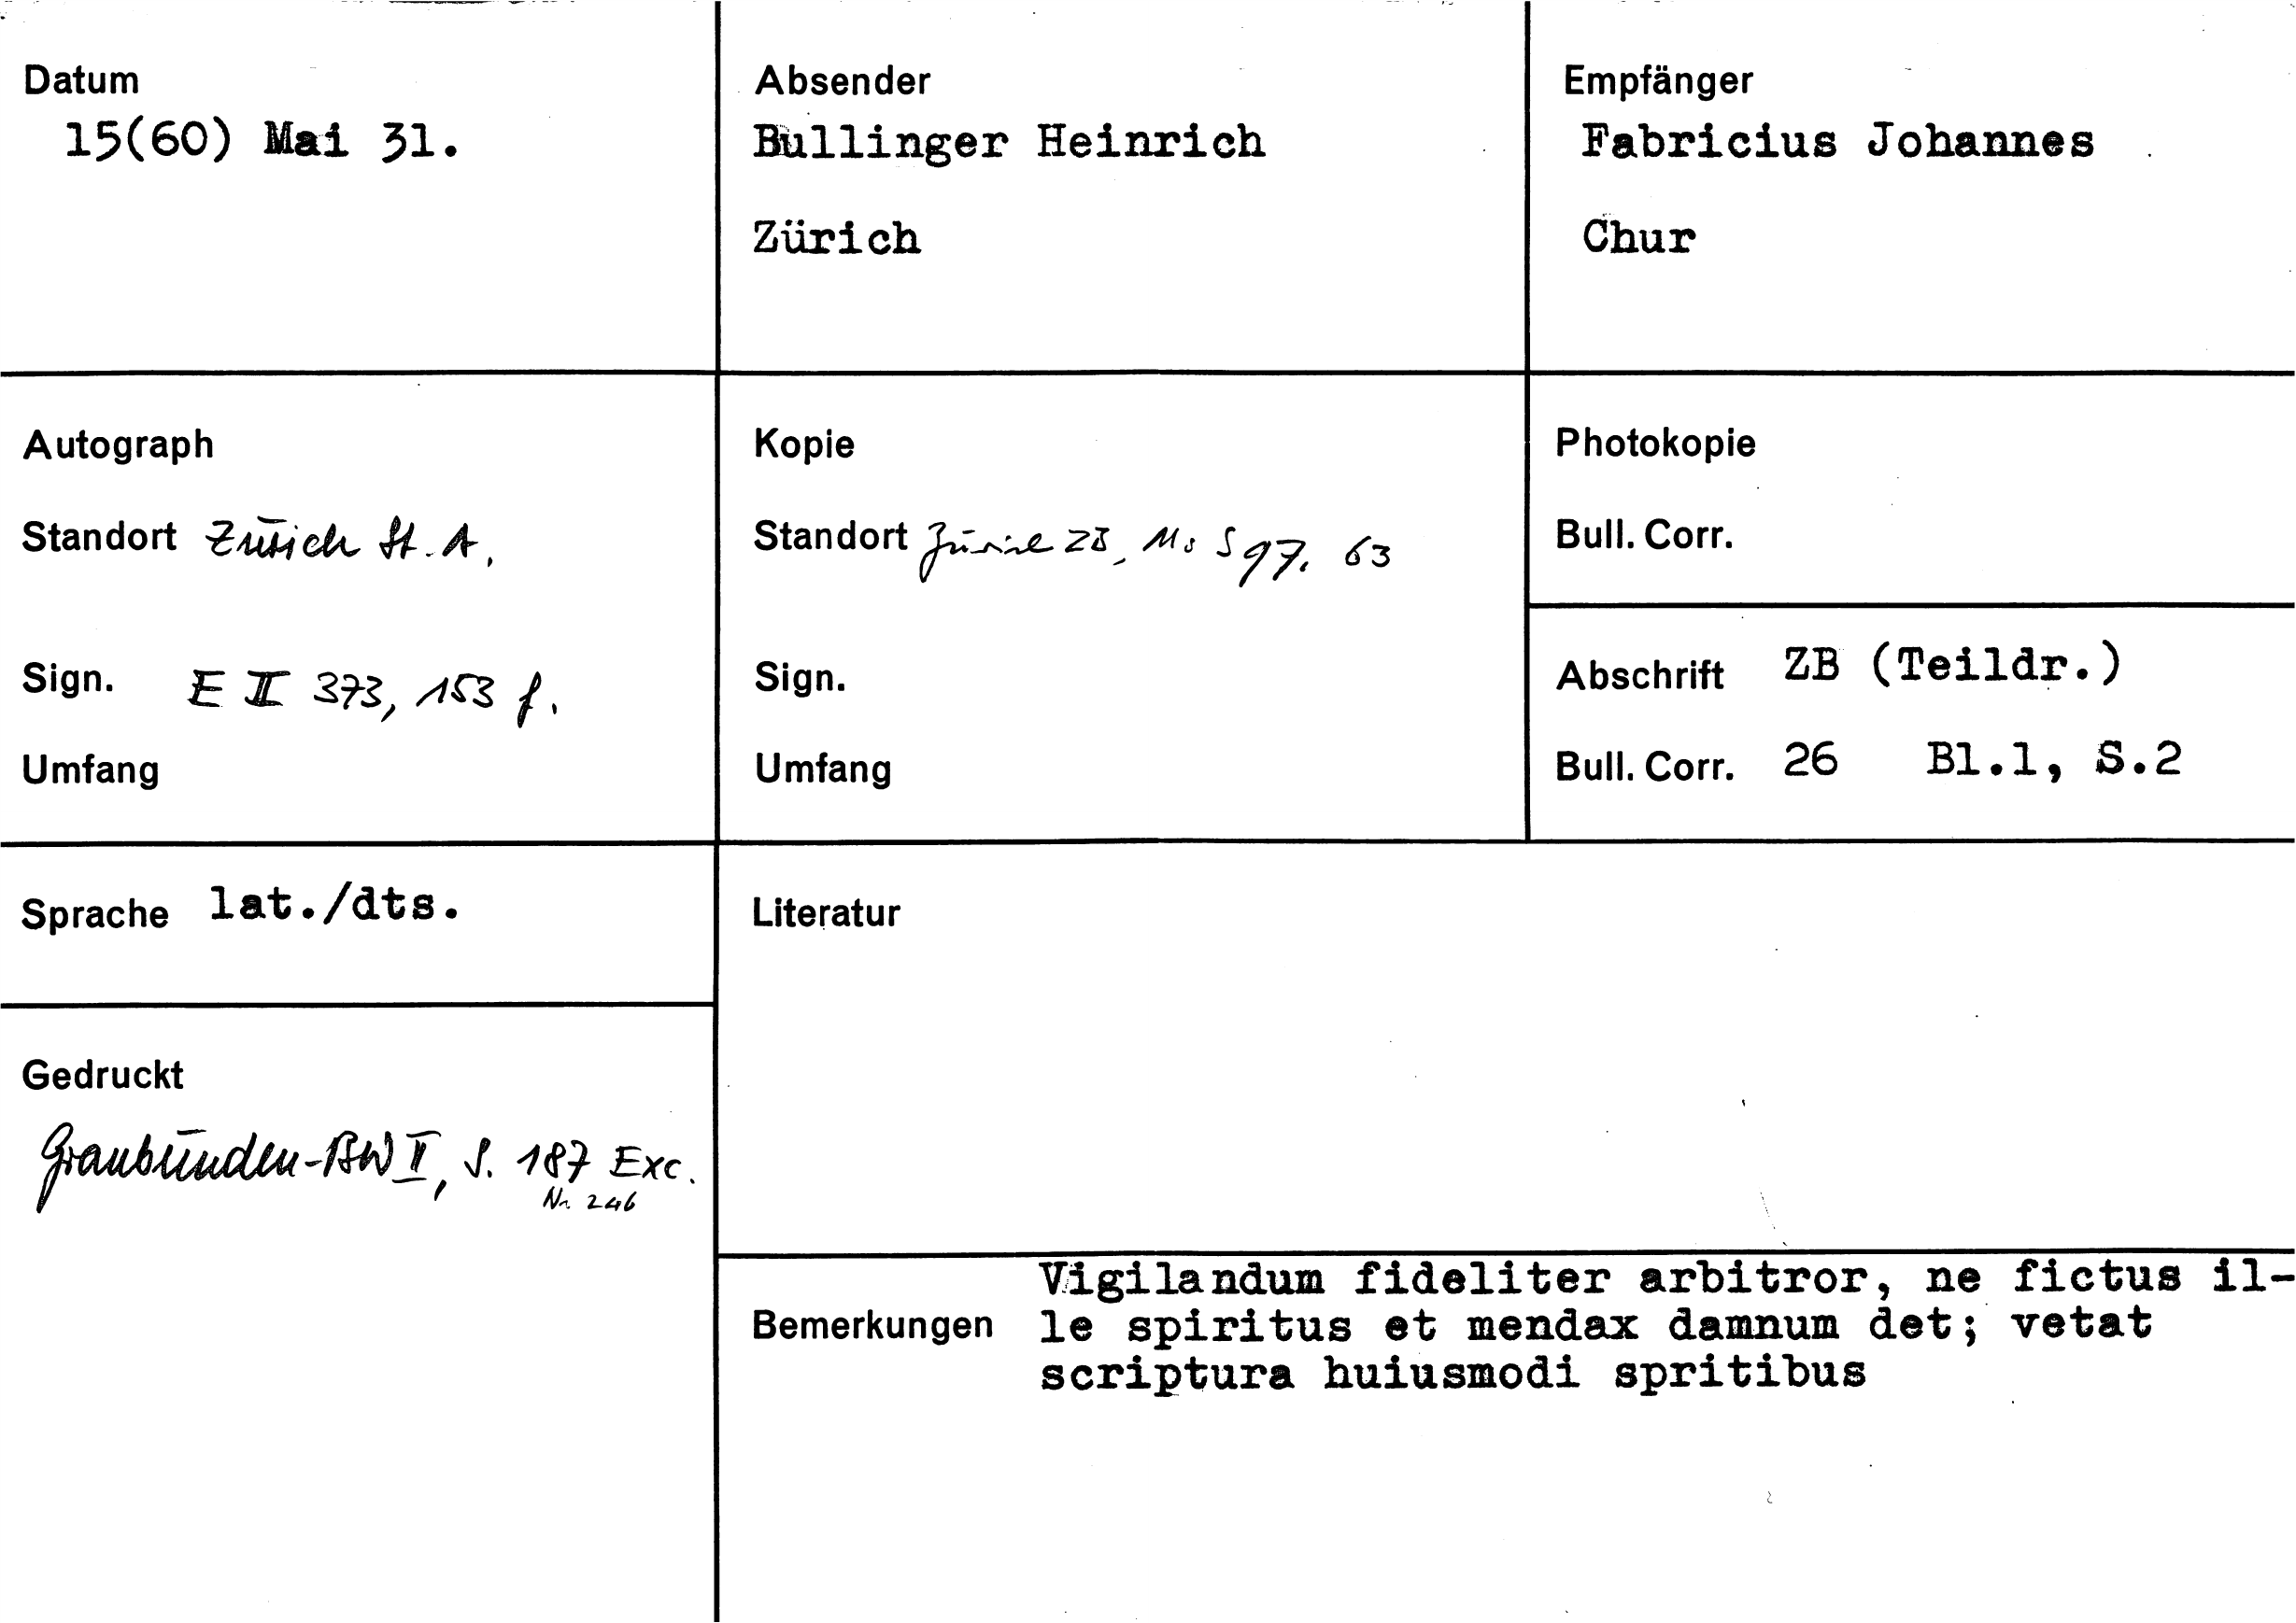 Datum
15(60) Mai 31.
Absender
Bullinger Heinrich
Zürich
Empfänger
Fabricius Johannes
Chur
Autograph
Standort Zürich St. A.
Sign. E II 373, 153 f.
Umfang
Kopie
Standort Zürich ZB, Ms S 97. 63
Sign.
Umfang
Photokopie
Bull. Corr.
Abschrift ZB (Teildr.)
Bull. Corr. 26 Bl.1, S.2
Sprache lat./dts.
Literatur
Gedruckt
Graubünden-BW II, S. 187 Exc.
Nr. 246
Bemerkungen
Vigilandum fideliter arbitror, ne fictus il-
le spiritus et mendax damnum det; vetat
scriptura huiusmodi spritibus